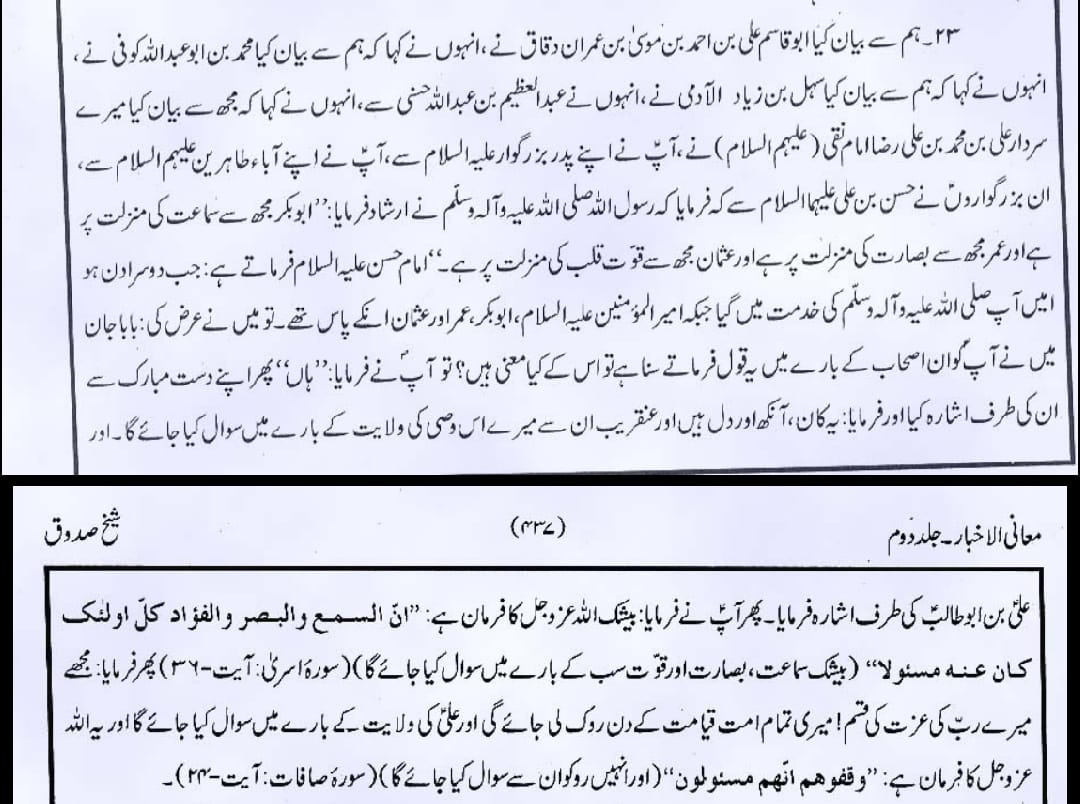 ۲۳۔ ہم سے بیان کیا ابو قاسم علی بن احمد بن موسیٰ بن عمران دقاق نے، انہوں نے کہا کہ ہم سے بیان کیا محمد بن ابو عبداللہ کوفی نے،
انہوں نے کہا کہ ہم سے بیان کیا سہل بن زیاد الآدمی نے، انہوں نے عبدالعظیم بن عبداللہ حسنی سے، انہوں نے کہا کہ مجھ سے بیان کیا میرے
سردار علی بن محمد بن علی رضا امام نقی (علیہم السلام) نے، آپؑ نے اپنے پدر بزرگوار علیہ السلام سے، آپؑ نے اپنے آباء طاہرین علیہم السلام سے،
ان بزرگواروںؑ نے حسن بن علی علیہما السلام سے کہ فرمایا کہ رسول اللہ صلی اللہ علیہ وآلہ وسلم نے ارشاد فرمایا: ”ابوبکر مجھ سے سماعت کی منزلت پر
ہے اور عمر مجھ سے بصارت کی منزلت پر ہے اور عثمان مجھ سے قوّت قلب کی منزلت پر ہے۔“ امام حسن علیہ السلام فرماتے ہے: جب دوسرا دن ہو
امیں آپ صلی اللہ علیہ وآلہ وسلّم کی خدمت میں گیا جبکہ امیر المؤمنین علیہ السلام، ابوبکر، عمر اور عثمان انکے پاس تھے۔ تو میں نے عرض کی: بابا جان
میں نے آپؐ کو ان اصحاب کے بارے میں یہ قول فرماتے سنا ہے تو اس کے کیا معنی ہیں؟ تو آپؐ نے فرمایا: ”ہاں“ پھر اپنے دست مبارک سے
ان کی طرف اشارہ کیا اور فرمایا: یہ کان، آنکھ اور دل ہیں اور عنقریب ان سے میرے اس وصی کی ولایت کے بارے میں سوال کیا جائے گا۔ اور
معانی الاخبار۔ جلد دوم (۴۳۷) شیخ صدوق
علیؑ بن ابو طالبؑ کی طرف اشارہ فرمایا۔ پھر آپؐ نے فرمایا: بیشک اللہ عز وجل کا فرمان ہے: ”انّ السمع والبصر والفؤاد کلّ اولئک
کان عنه مسئولا“ (بیشک سماعت، بصارت اور قوّت سب کے بارے میں سوال کیا جائے گا) (سورۂ اسریٰ: آیت-۳۶) پھر فرمایا: مجھے
میرے ربّ کی عزت کی قسم! میری تمام امت قیامت کے دن روک لی جائے گی اور علیؑ کی ولایت کے بارے میں سوال کیا جائے گا اور یہ اللہ
عز وجل کا فرمان ہے: ”وقفوهم انّهم مسئولون“ (اور انہیں روکو ان سے سوال کیا جائے گا) (سورۂ صافات: آیت-۲۴)۔